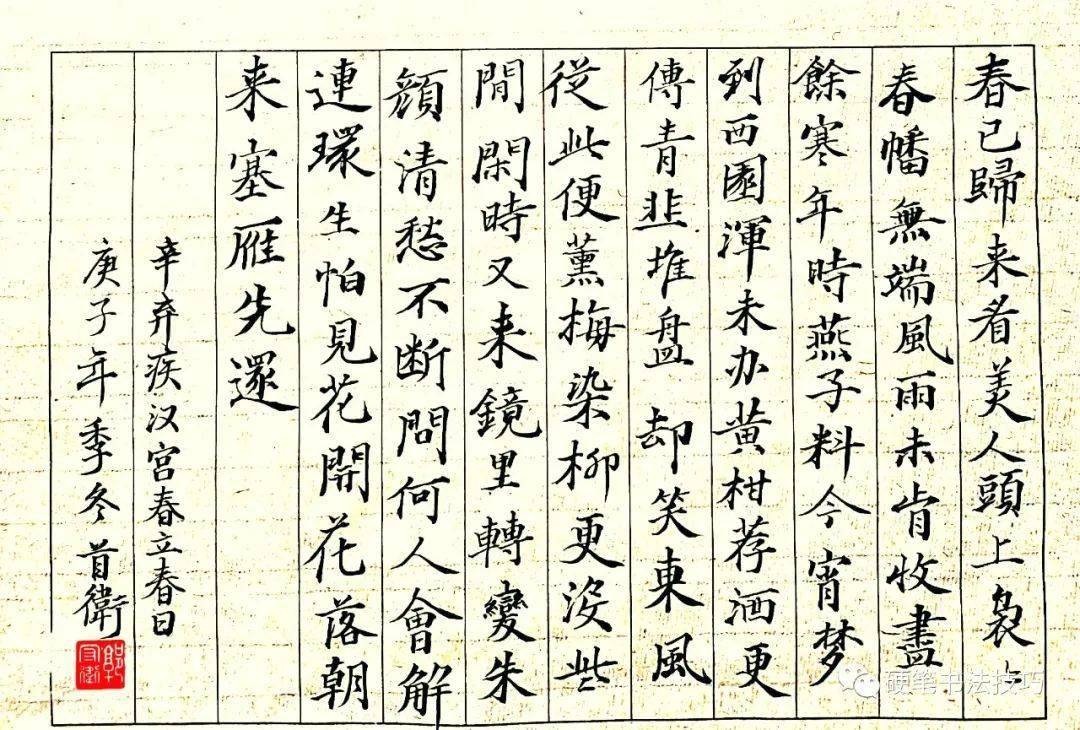 春已歸来看美人頭上裊々
春幡無端風雨未肯收盡
餘寒年時燕子料今宵梦
到西園渾未办黄柑荐酒更
傳青韭堆盘却笑東風
従此便薰梅染柳更没些
閒閑時又来鏡里轉變朱
顔清愁不断問何人會解
連環生怕見花開花落朝
来塞雁先還
辛弃疾汉宫春立春日
庚子年季冬首衛
郭首衛
硬笔书法技巧